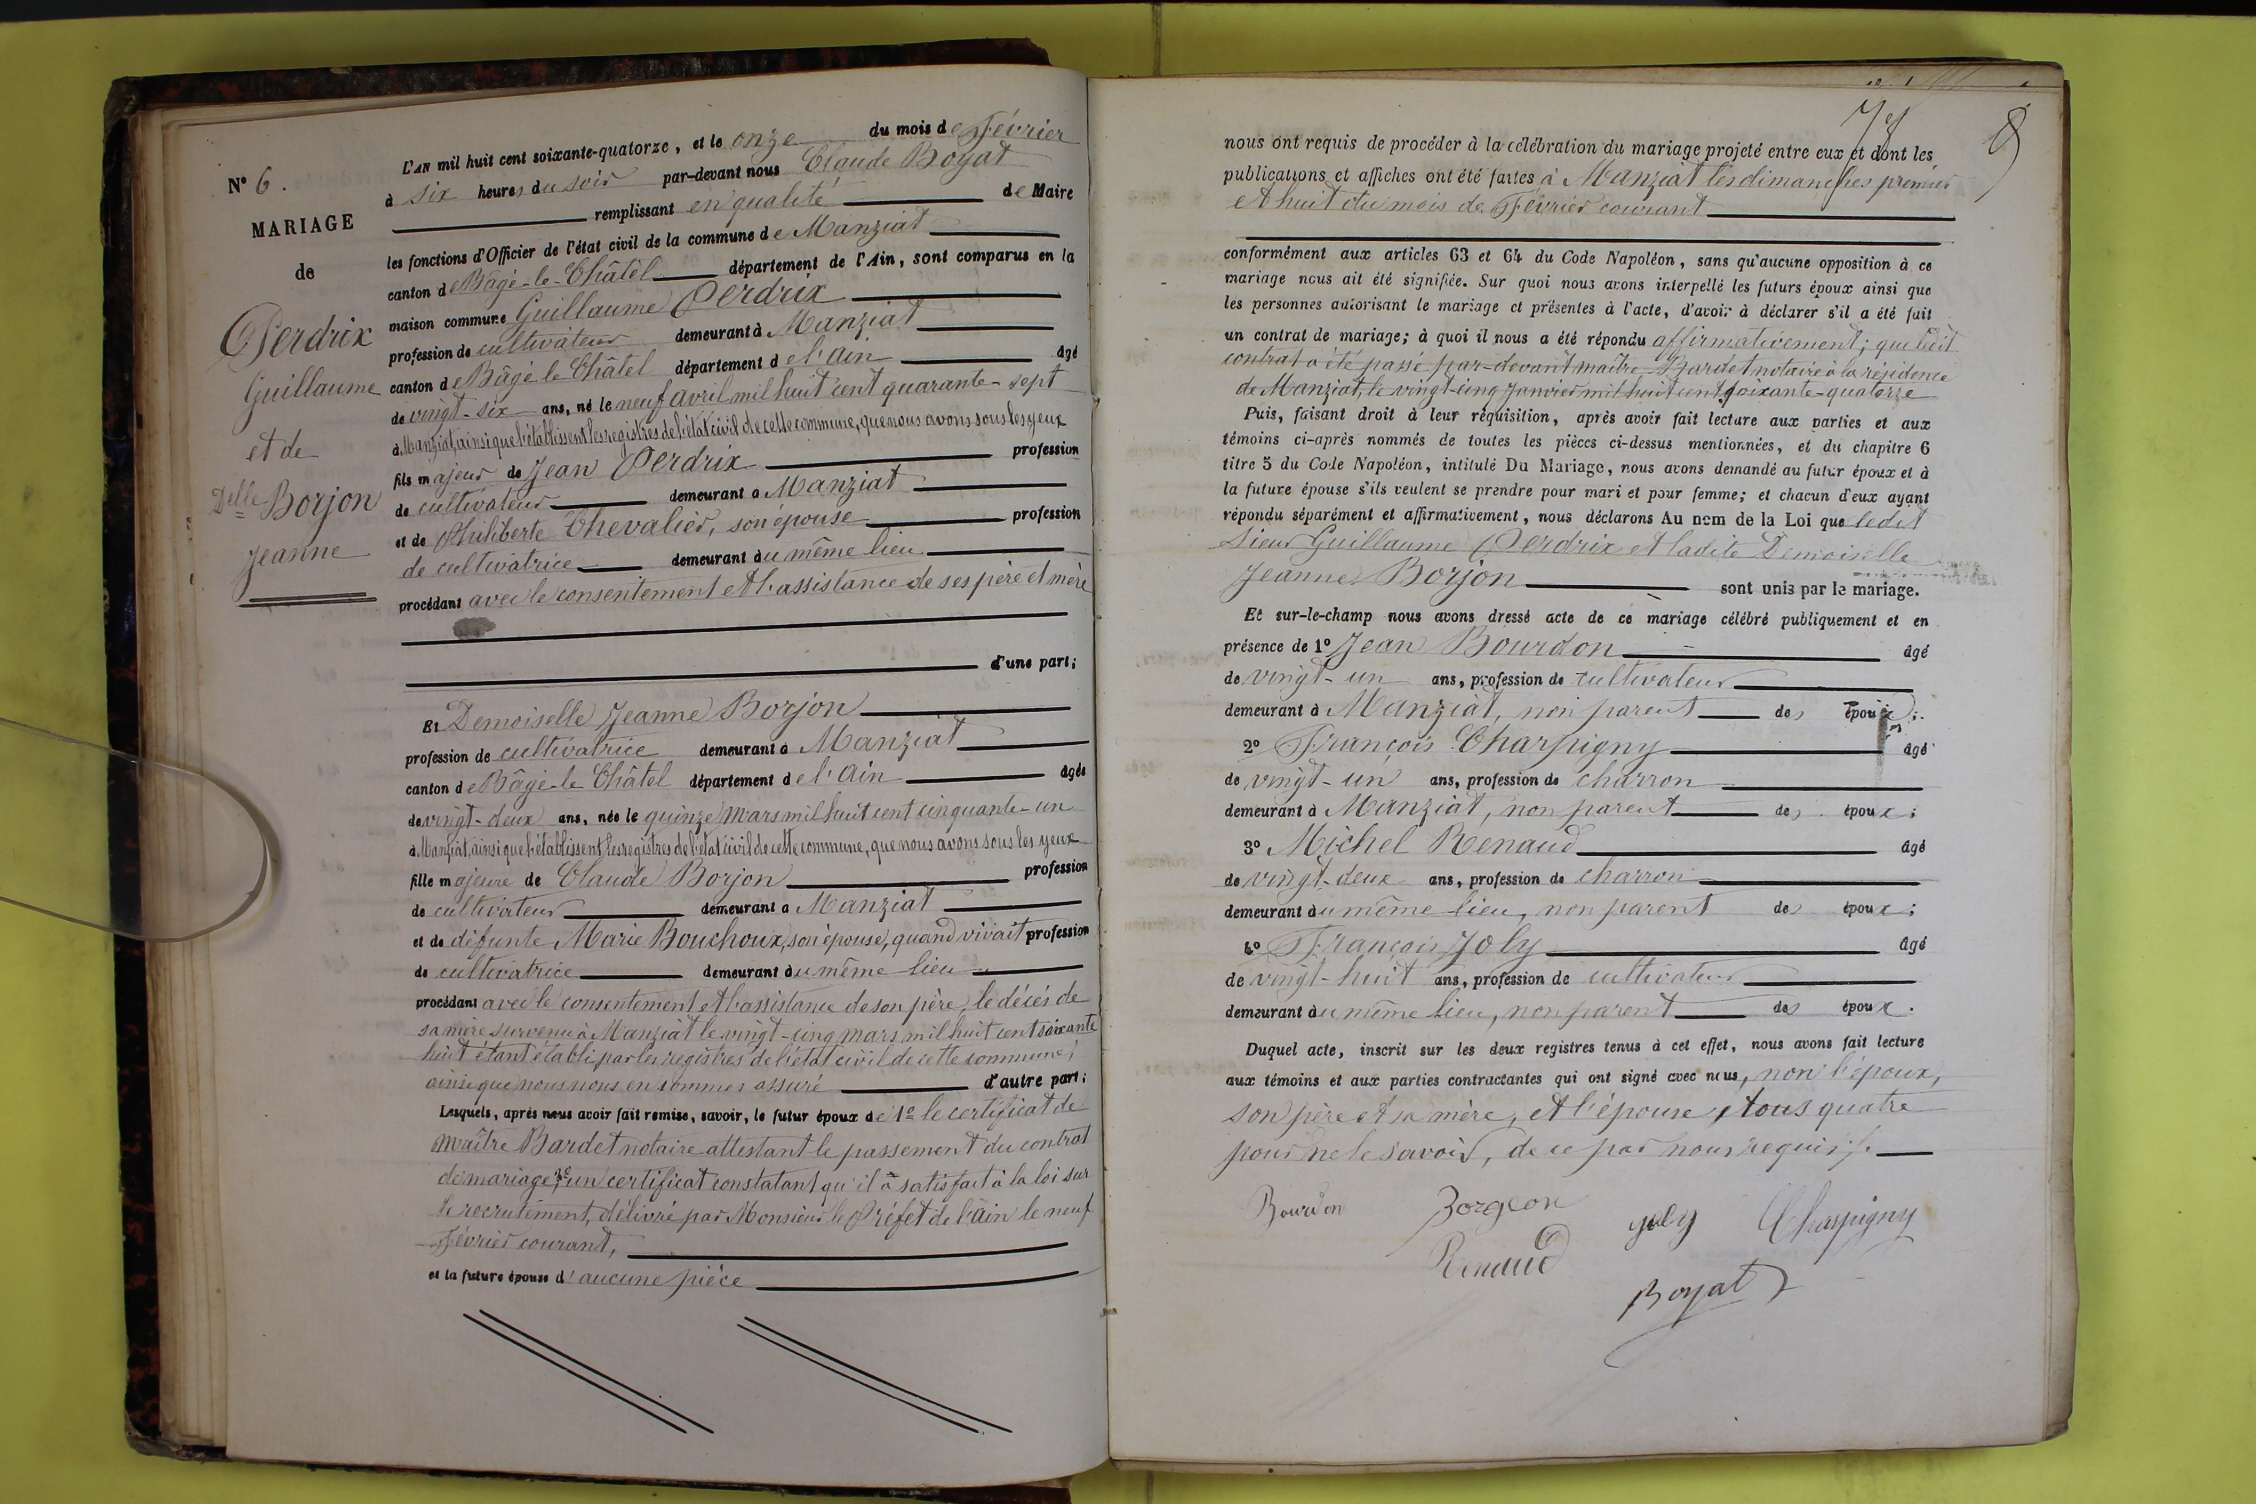 N° 6.
MARIAGE
de
Perdrix
Guillaume
et de
Delle Borjon
Jeanne
L'AN mil huit cent soixante-quatorze, et le onze du mois de Février
à six heures du soir par-devant nous Claude Boyat
remplissant en qualité de Maire
les fonctions d'Officier de l'état civil de la commune de Manziat
canton de Bâgé-le-Châtel département de l'Ain, sont comparus en la
maison commune Guillaume Perdrix
profession de cultivateur demeurant à Manziat
canton de Bâgé le Châtel département de l'Ain âgé
de vingt-six ans, né le neuf avril mil huit cent quarante-sept
à Manziat, ainsi que l'établissent les registres de l'état civil de cette commune, que nous avons sous les yeux
fils majeur de Jean Perdrix profession
de cultivateur demeurant à Manziat
et de Philiberte Chevalier, son épouse profession
de cultivatrice demeurant au même lieu
procédant avec le consentement et l'assistance de ses père et mère
d'une part;
Et Demoiselle Jeanne Borjon
profession de cultivatrice demeurant à Manziat
canton de Bâgé-le Châtel département de l'Ain âgée
de vingt-deux ans, née le quinze mars mil huit cent cinquante-un
à Manziat, ainsi que l'établissent les registres de l'état civil de cette commune, que nous avons sous les yeux
fille majeure de Claude Borjon profession
de cultivateur demeurant à Manziat
et de défunte Marie Bouchoux, son épouse, quand vivait profession
de cultivatrice demeurant au même lieu
procédant avec le consentement et l'assistance de son père, le décès de
sa mère survenu à Manziat le vingt-cinq mars mil huit cent soixante
huit étant établi par les registres de l'état civil de cette commune;
ainsi que nous nous en sommes assuré d'autre part;
Lesquels, après nous avoir fait remise, savoir, le futur époux de 1° le certificat de
maître Bardet notaire attestant le passement du contrat
de mariage; 2° un certificat constatant qu'il a satisfait à la loi sur
le recrutement, délivré par Monsieur le Préfet de l'Ain le neuf
Février courant,
et la future épouse d'aucune pièce
8
nous ont requis de procéder à la célébration du mariage projeté entre eux et dont les
publications et affiches ont été faites à Manziat les dimanches premier
et huit du mois de Février courant
conformément aux articles 63 et 64 du Code Napoléon, sans qu'aucune opposition à ce
mariage nous ait été signifiée. Sur quoi nous avons interpellé les futurs époux ainsi que
les personnes autorisant le mariage et présentes à l'acte, d'avoir à déclarer s'il a été fait
un contrat de mariage; à quoi il nous a été répondu affirmativement; que ledit
contrat a été passé par-devant maître Bardet notaire à la résidence
de Manziat, le vingt-cinq Janvier mil huit cent soixante-quatorze
Puis, faisant droit à leur réquisition, après avoir fait lecture aux parties et aux
témoins ci-après nommés de toutes les pièces ci-dessus mentionnées, et du chapitre 6
titre 5 du Code Napoléon, intitulé Du Mariage, nous avons demandé au futur époux et à
la future épouse s'ils veulent se prendre pour mari et pour femme; et chacun d'eux ayant
répondu séparément et affirmativement, nous déclarons Au nom de la Loi que ledit
Sieur Guillaume Perdrix et ladite Demoiselle
Jeanne Borjon sont unis par le mariage.
Et sur-le-champ nous avons dressé acte de ce mariage célébré publiquement et en
présence de 1° Jean Bourdon âgé
de vingt-un ans, profession de cultivateur
demeurant à Manziat, non parent des époux;
2° François Charpigny âgé
de vingt-un ans, profession de charron
demeurant à Manziat, non parent des époux;
3° Michel Renaud âgé
de vingt-deux ans, profession de charron
demeurant au même lieu, non parent des époux;
4° François Joly âgé
de vingt-huit ans, profession de cultivateur
demeurant au même lieu, non parent des époux.
Duquel acte, inscrit sur les deux registres tenus à cet effet, nous avons fait lecture
aux témoins et aux parties contractantes qui ont signé avec nous, non l'époux,
son père et sa mère, et l'épouse, tous quatre
pour ne le savoir, de ce par nous requis.
Bourdon Borgeon Joly Charpigny
Renaud
Boyat